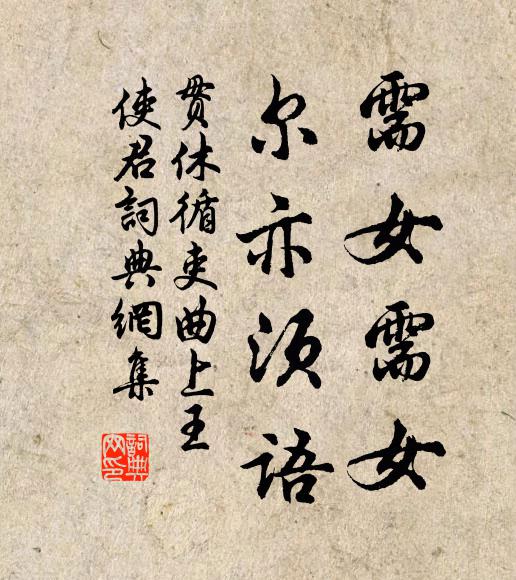 需女需女
尔亦须語
贯休循吏曲上王
使君詞典網集
詞典
网印